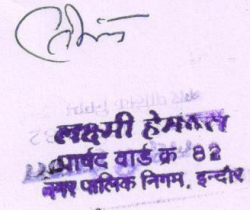 लक्ष्मी हेमन्त
पार्षद वार्ड क्र 82
नगर पालिक निगम, इन्दौर